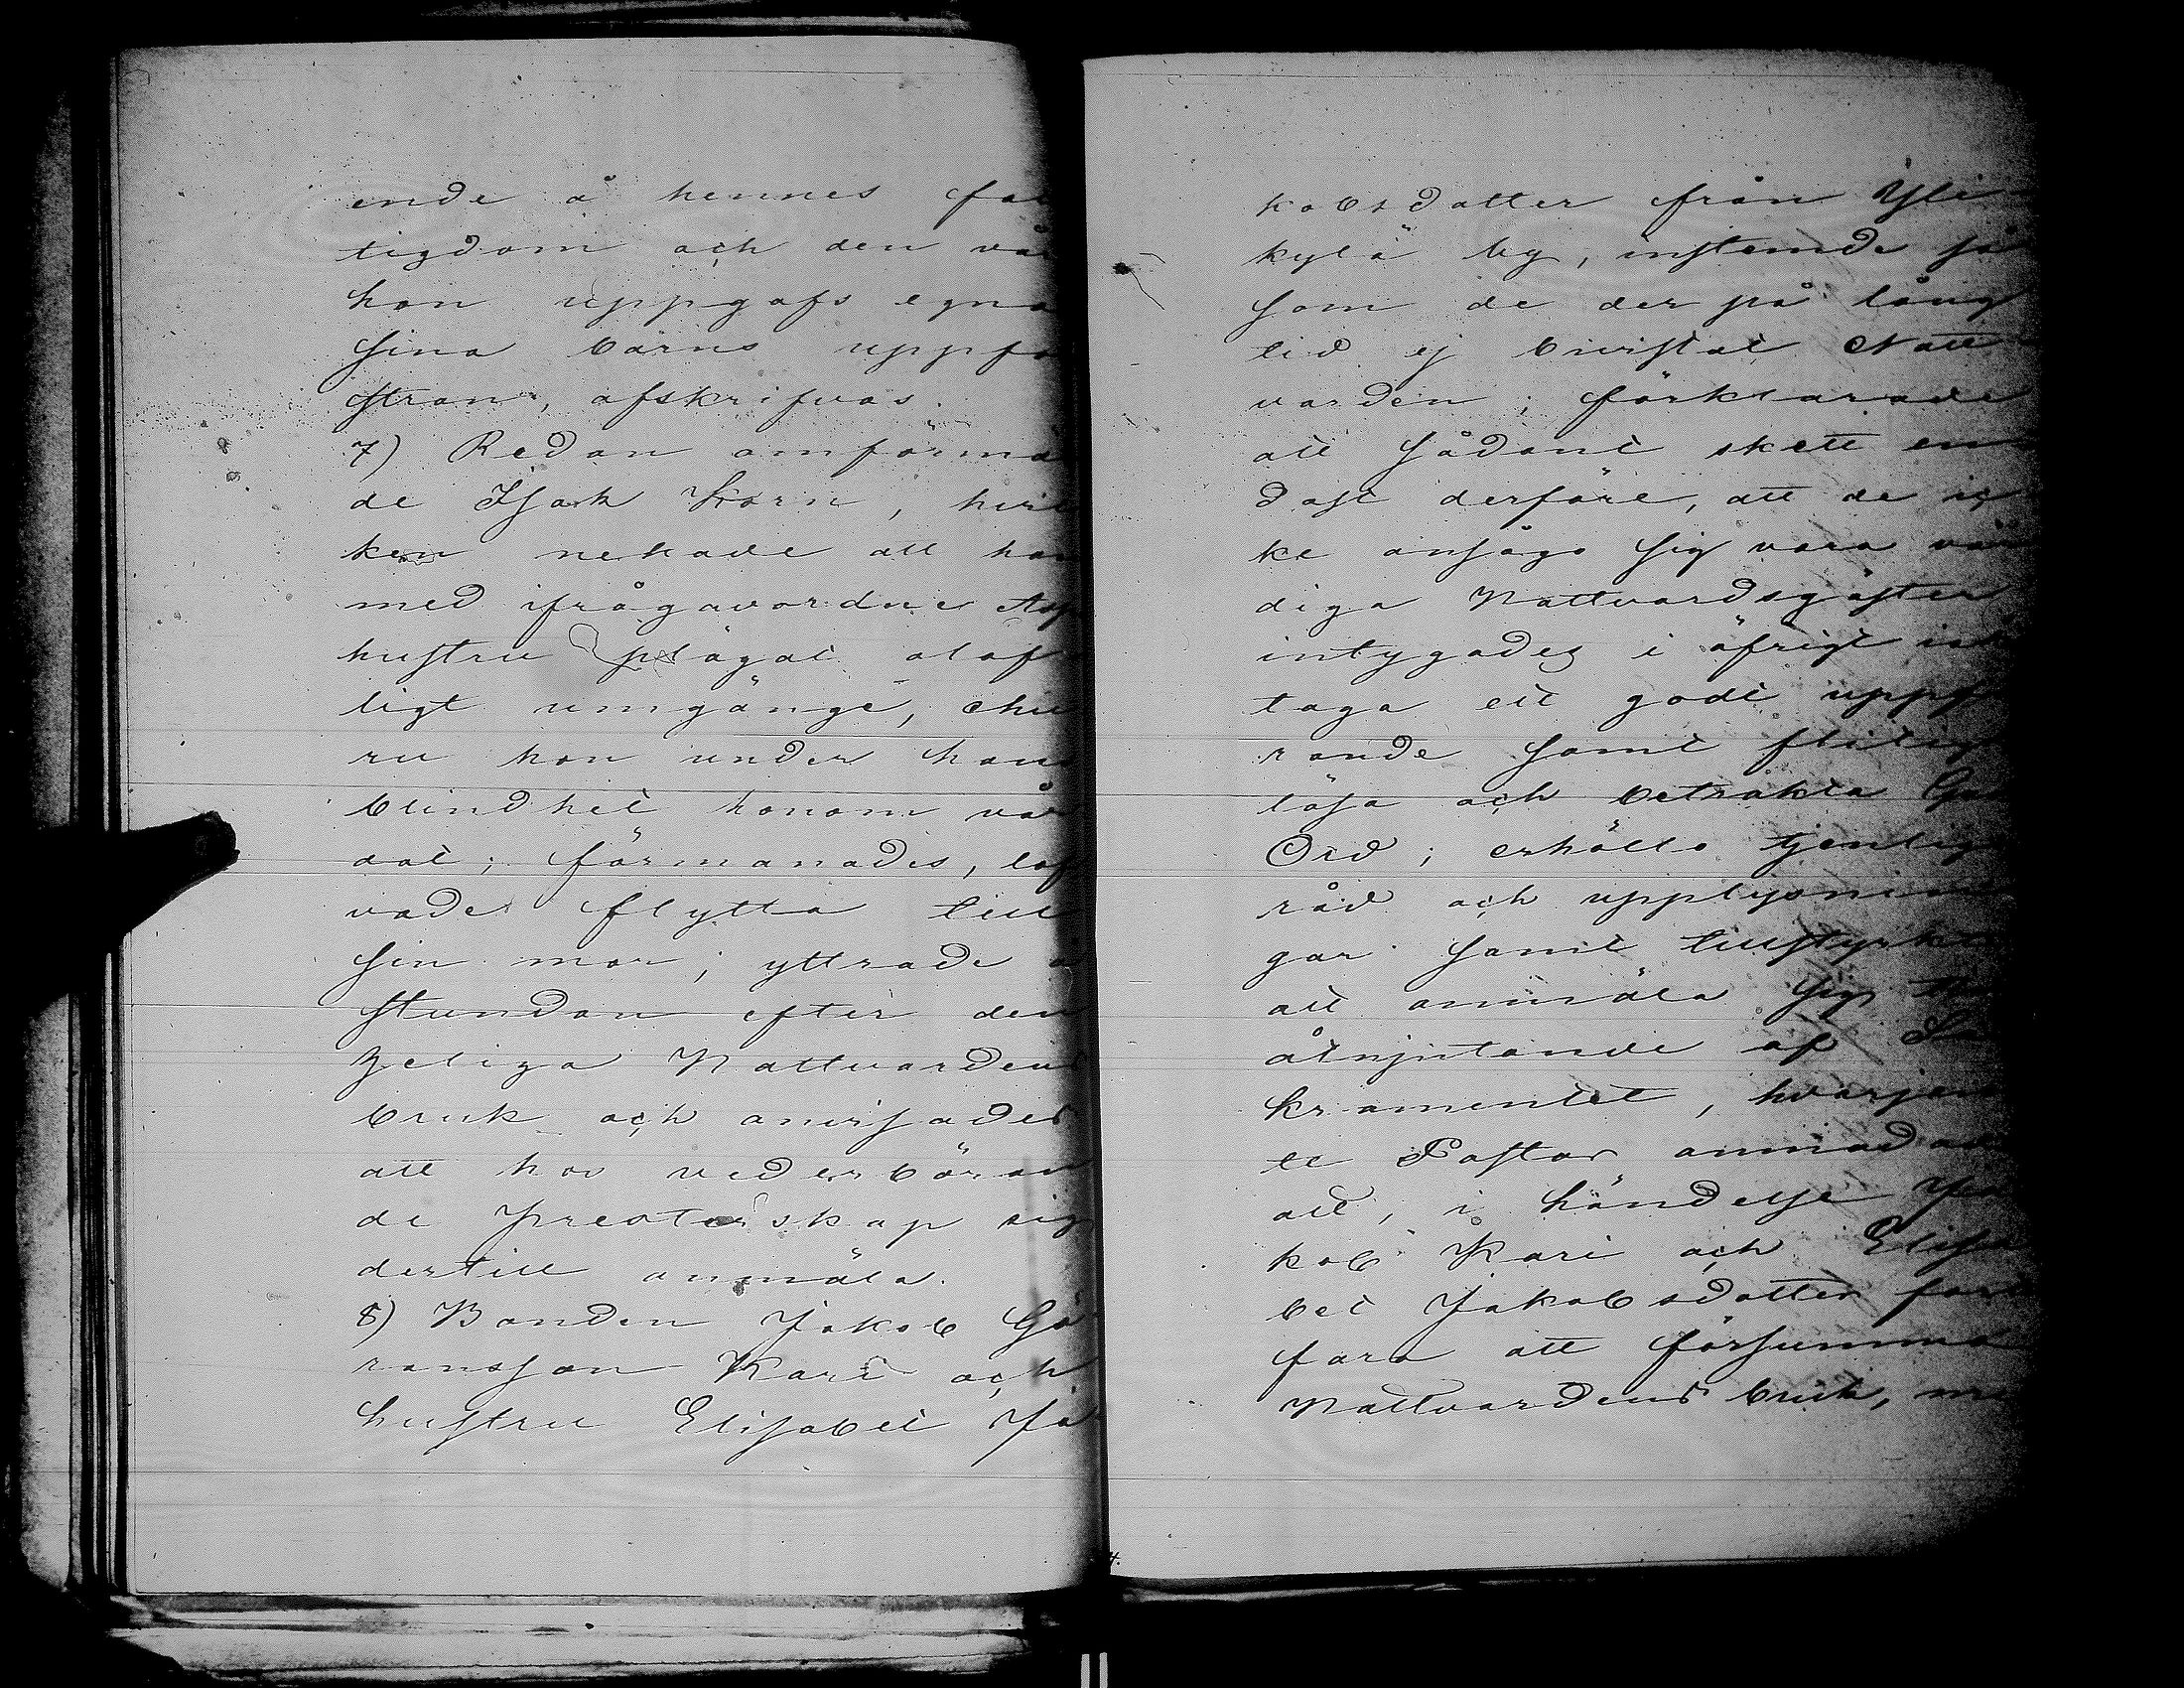 ende å hennes fat
tigdom och den vår
hon uppgafs egna
sina barns uppfo
stran, afskrifvas.
7) Redan omförmäl
de Isak Korn, hvil
ken nekade att han
med ifrågavordne Asp
hustru plägat olof
ligt umgänge, ehu
ru hon under hans
blindhet honom vår
dat; förmanades, lof
vade flytta till
sin mor; yttrade å
stundan efter den
heliga Nattvardens
bruk och anvisades
att hos vederböran
de Presterskap sig
dertill anmäla.
8) Bonden Jakob Gö
ransson Kari och
hustru Elisabet Ja
kobsdotter från Yli
kylä by, instemde så
som de der på lång
tid ej bevistat Natt
varden; förklarade
att sådant skett en
dast derföre, att de ic
ke ansågo sig vara vär
diga Nattvardsgäster
intygades i öfrigt iakt
taga ett godt uppfö
rande samt flitigt
läsa och betrakta Guds
Ord; erhöllo tjenliga
råd och upplysnin
gar samt tillstyrktes
att anmäla sig till
åtnjutande af Sa
kramentet, hvarjem
te Pastor anmodades
att, i händelse Ja
kob Kari och Elisa
bet Jakobsdotter fort
fara att försumma
Nattvardens bruk, me